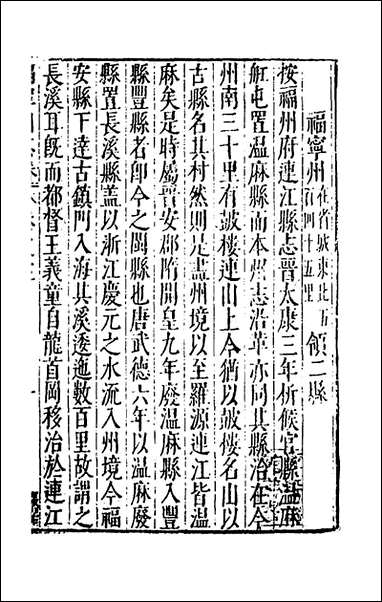 福寧州在省城東北五百四十五里領二縣
按福州府連江縣志晉太康三年析候官縣溫麻
舡屯置溫麻縣而本州志沿革亦同其縣治在今
州南三十里有皷樓連山上今猶以皷樓名山以
古縣名其村然則是盡州境以至羅源連江皆溫
麻矣是時屬晉安郡隋開皇九年廢溫麻縣入豐
縣豐縣者卽今之閩縣也唐武德六年以溫麻廢
縣置長溪縣蓋以浙江慶元之水流入州境今福
安縣下達古鎮門入海其溪逶迤數百里故謂之
長溪耳旣而都督王義童自龍首岡移治於連江